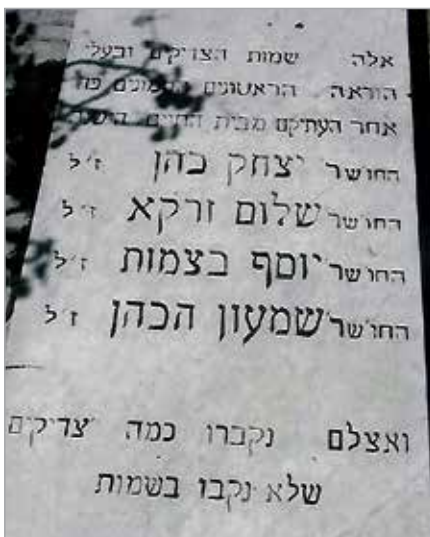 אלה שמות הצדיקים ובעלי
הוראה הראשונים הטמונים פה
אחר העתיקם מבית החיים הישן
החו׳שר יצחק כהן ז״ל
החו׳שר שלום זרקא ז״ל
החו׳שר יוסף בצמות ז״ל
החו׳שר שמעון הכהן ז״ל
ואצלם נקברו כמה צדיקים
שלא נקבו בשמות